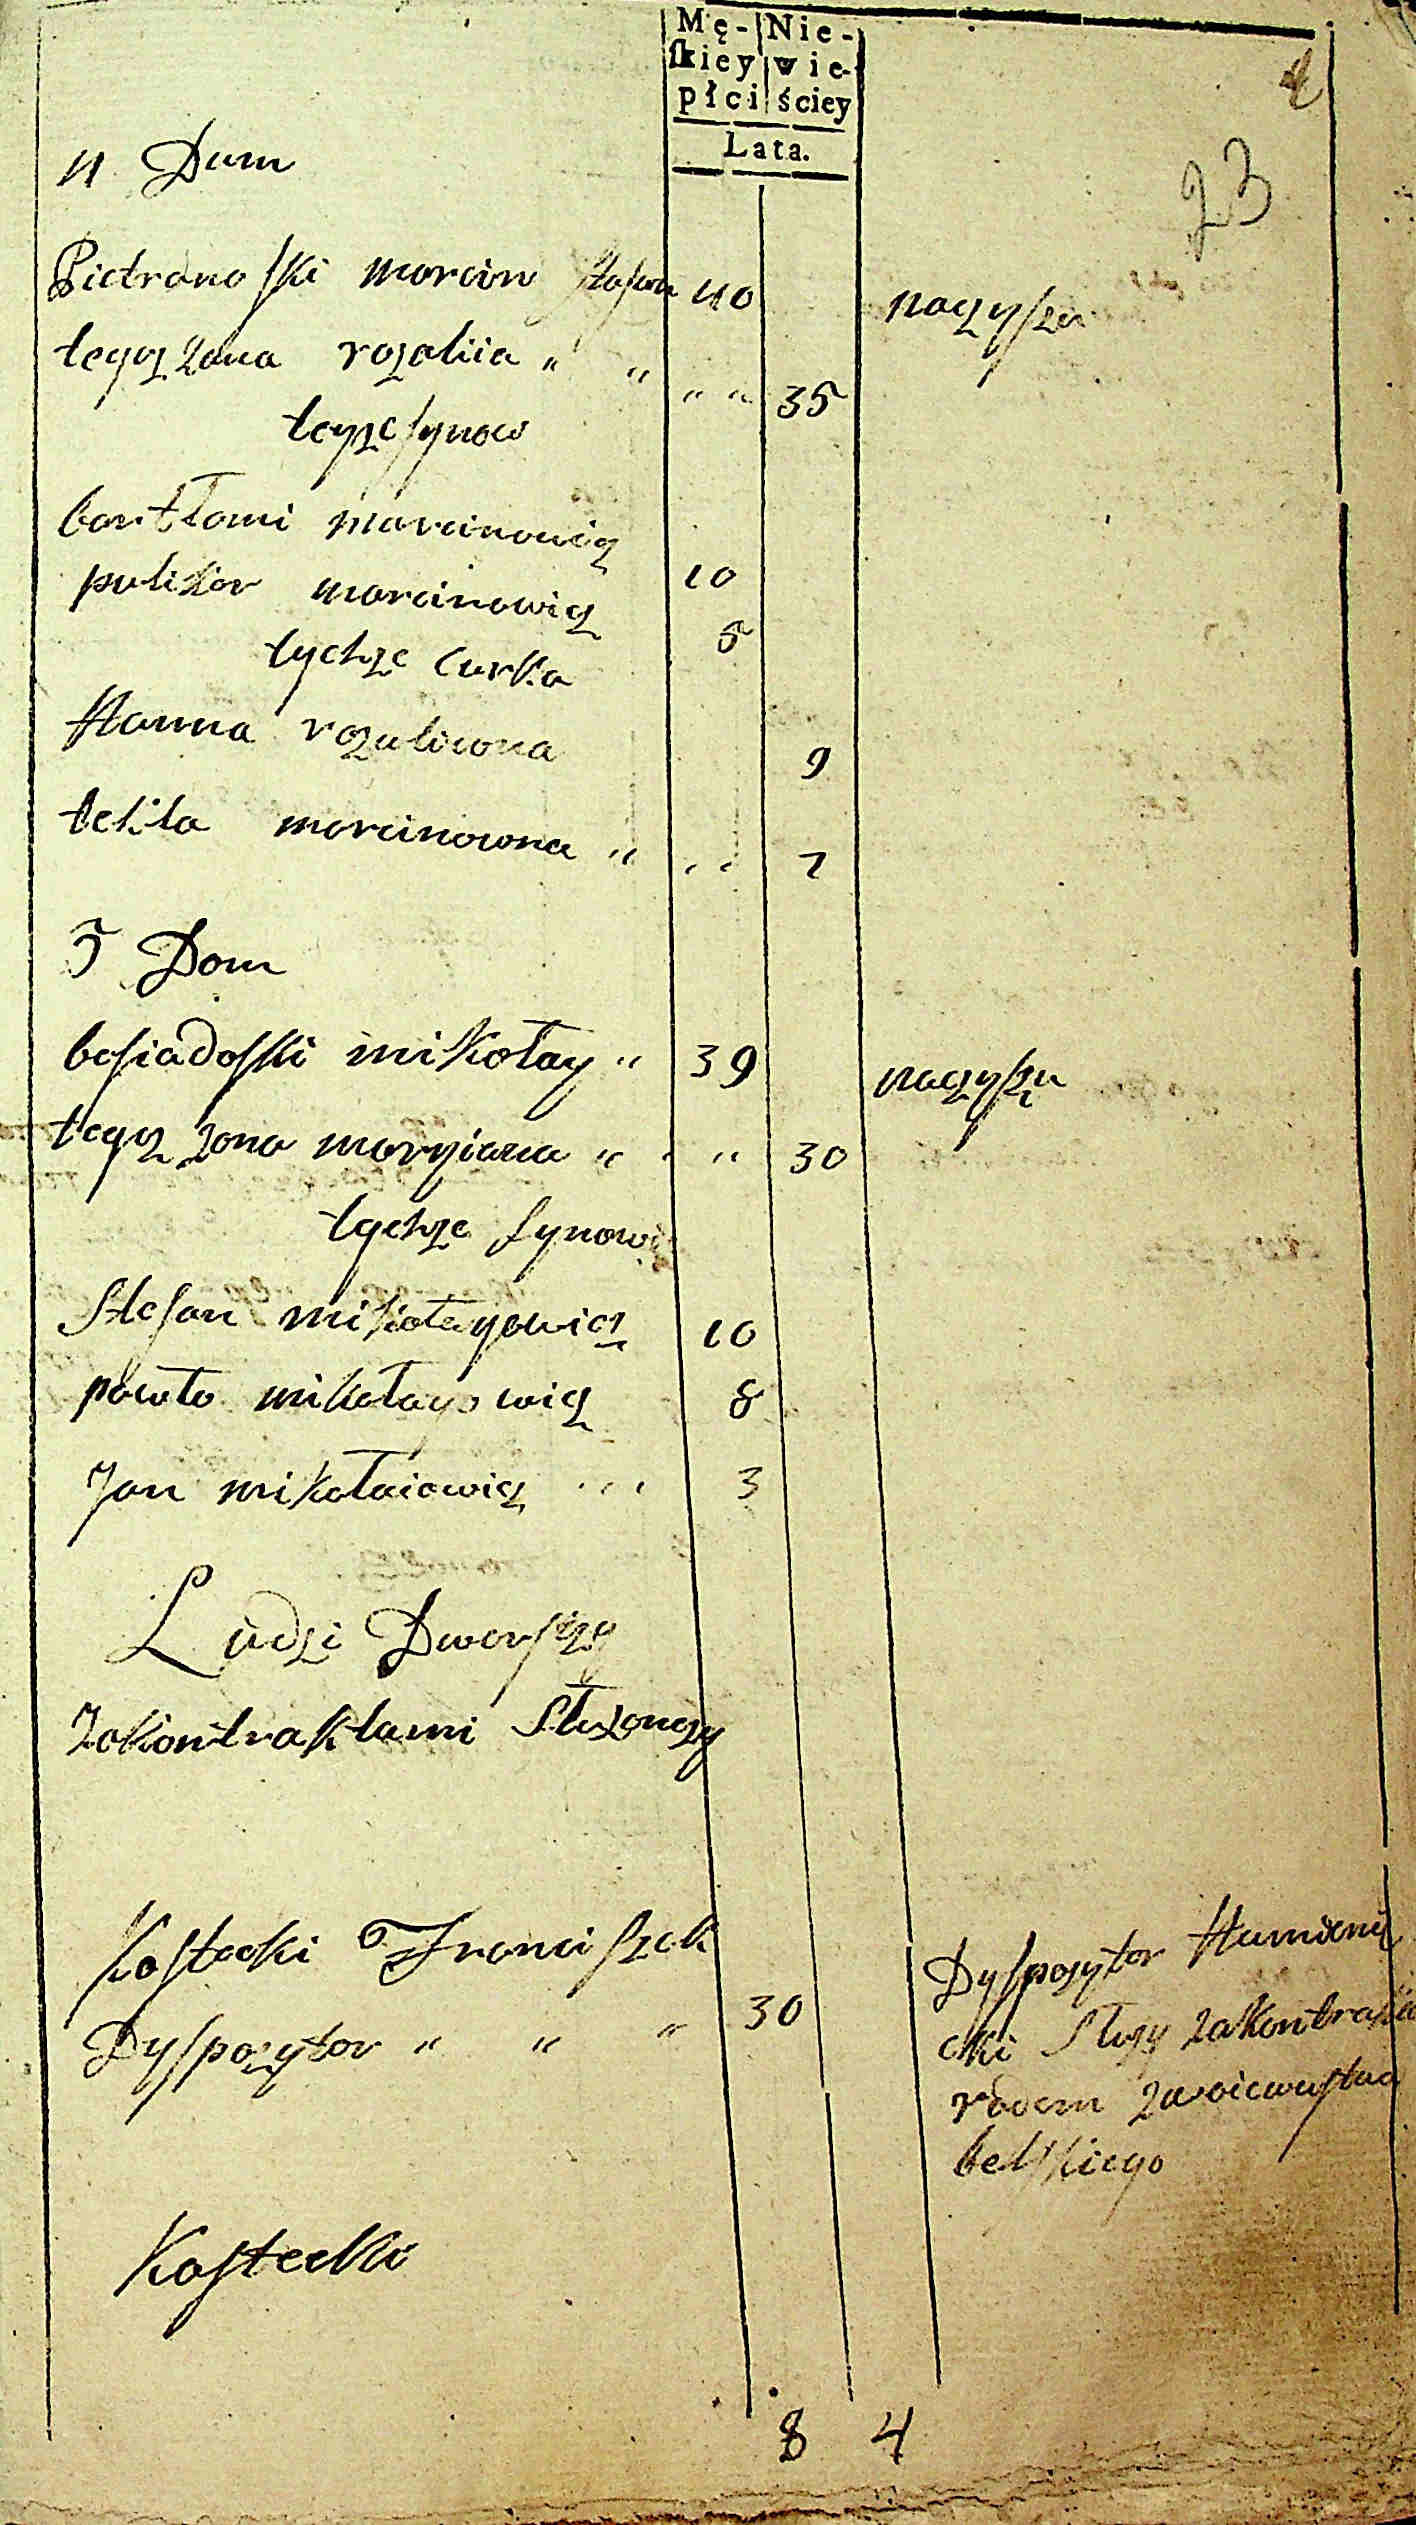 Mę- Nie-
ſkiey wie-
płci ściey
Lata.
4
23
4 Dum
Pietrano ſki marcin 40 naczyſzu
tegoz zona rozaliia „ „ „ „ 35
teyze ſynow
bartłomi marcinowicz 10
pulikar marcinowicz 5
tychze curka
Hanna rozaliowna 9
tekla marcinowna „ „ 7
5 Dom
beſiadoſki mikołay „ 39 naczyſzu
tegoz zona maryiana „ „ 30
tychze ſynowi
Stefan mikołayowicz 10
pawło mikołayowicz 8
Jan mikołaiowicz 3
Ludzi Dworſkzy
zakontraktami Służonczy
Koſtecki Franciſzek
Dyſpozytor „ „ „ 30
Dyſpozytor Humieni
cki Służy zakontrak
rodem zwoiewuſtwa
belſkiego
Koſtecki
8 4